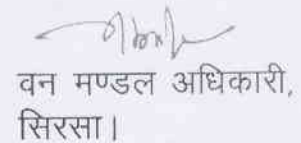 वन मण्डल अधिकारी,
सिरसा।